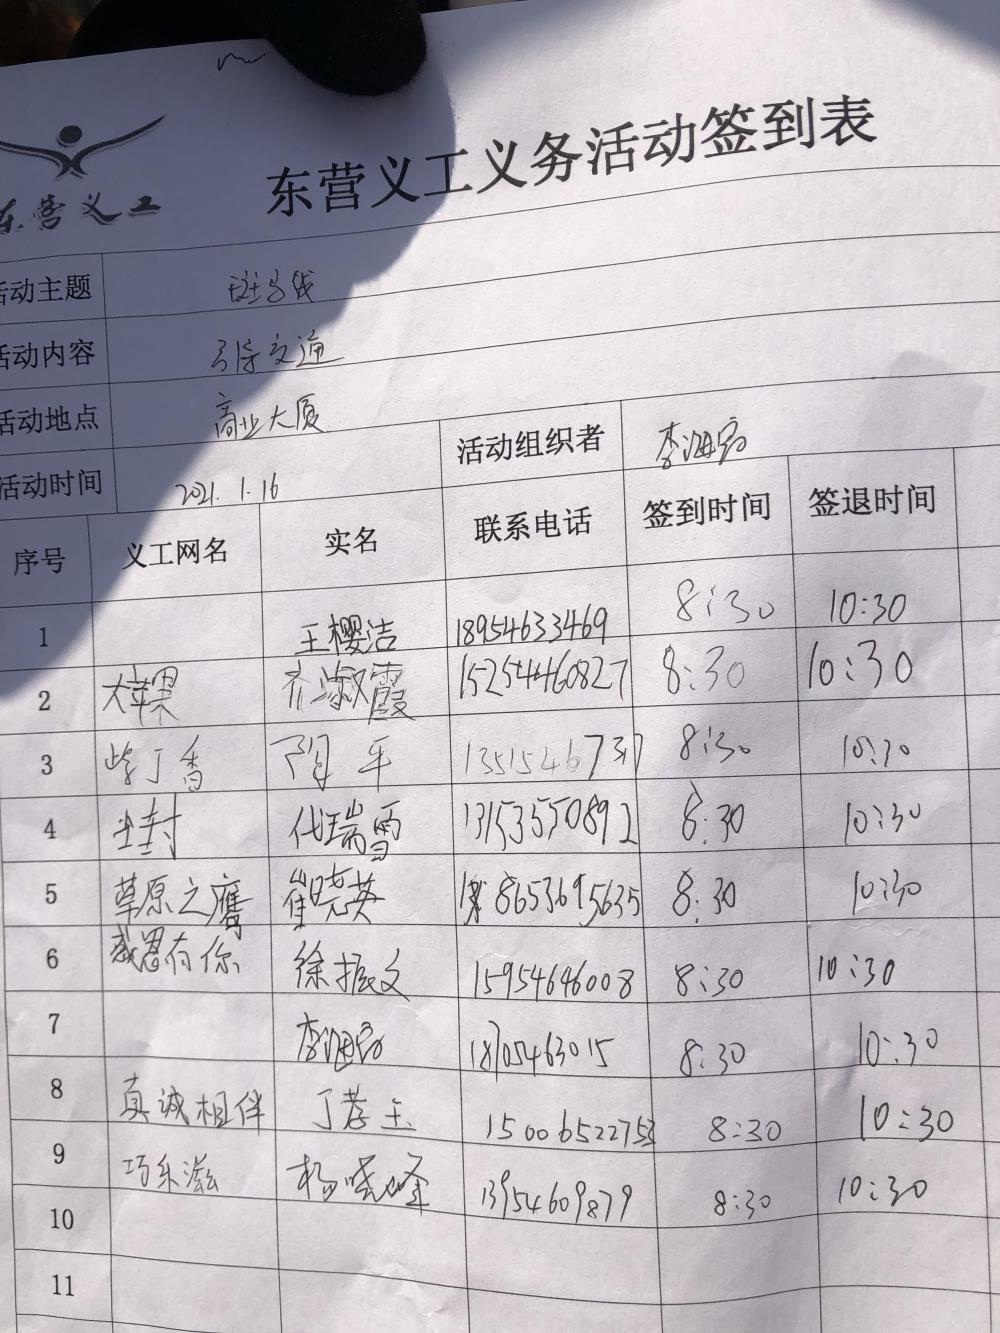 东营义工义务活动签到表
东营义工
活动主题 斑马线
活动内容 引导交通
活动地点 商业大厦
活动时间 2021.1.16 活动组织者 李海宏
序号 义工网名 实名 联系电话 签到时间 签退时间
1 王樱洁 18954633469 8:30 10:30
2 大苹果 齐淑霞 15254460827 8:30 10:30
3 紫丁香 平 8:30 10:30
4 尘封 代瑞雪 13153550892 8:30 10:30
5 草原之鹰 崔晓英 18653695635 8:30 10:30
6 感恩有你 徐振文 15954646008 8:30 10:30
7 李海宏 8:30 10:30
8 真诚相伴 丁孝玉 15006522753 8:30 10:30
9 巧乐滋 杨晓峰 13954609879 8:30 10:30
10
11